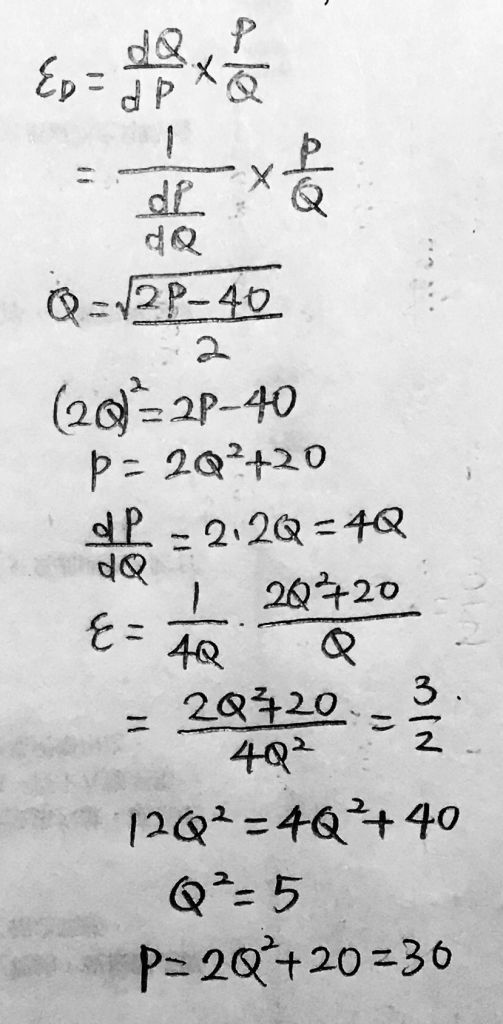 ε_D = dQ/dP × P/Q
= 1/(dP/dQ) × P/Q
Q = √(2P-40)/2
(2Q)² = 2P-40
P = 2Q²+20
dP/dQ = 2·2Q = 4Q
ε = 1/4Q · (2Q²+20)/Q
= (2Q²+20)/4Q² = 3/2.
12Q² = 4Q²+40
Q² = 5
P = 2Q²+20 = 30